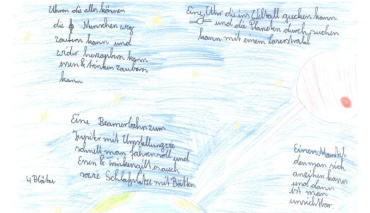 Uhren die alles können
die Menschen weg
zaubern kann und
wider herzaubern kann
essen & trinken zaubern
kann
Eine Uhr die ins Weltall gucken kann
und die Planeten durch suchen
kann mit einem laserstrahl
Eine Beamerbahn zum
Jupiter mit Umstellungs
schnell man fahren soll und
Essen & trinken gibt es auch
Schlafplätze mit Betten
Einen Mantel
den man sich
anziehen kann
und dann
ist man
unsichtbar